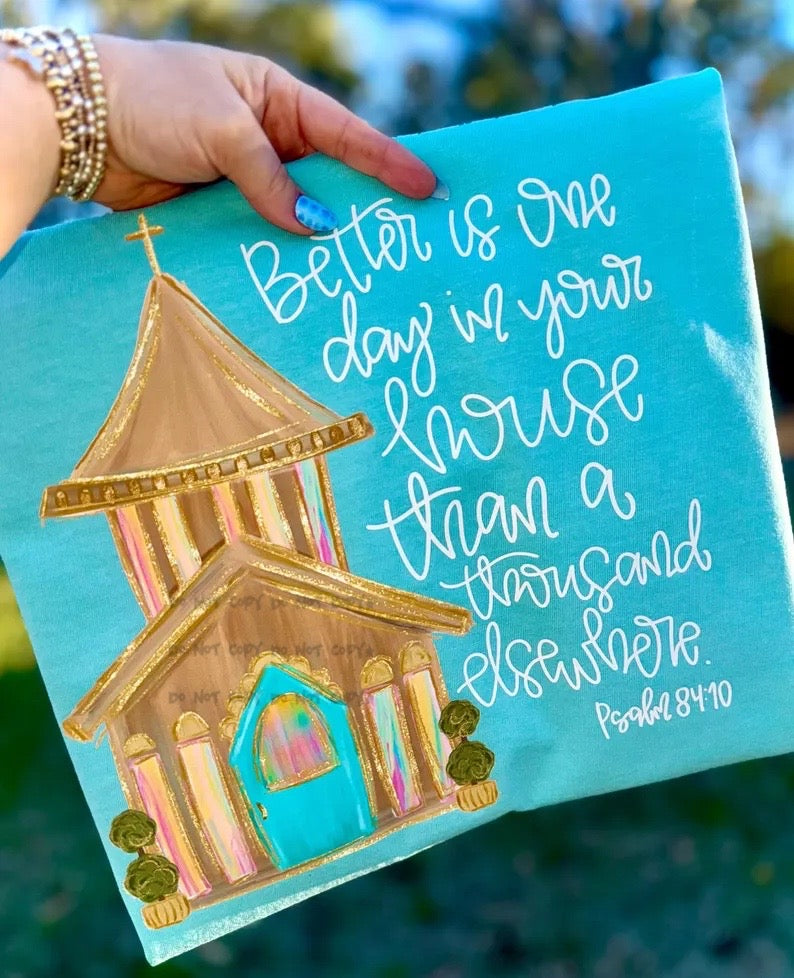 Better is one
day in your
house
than a
thousand
elsewhere.
Psalm 84:10
DO NOT COPY DO NOT COPY
DO NOT COPY DO NOT COPY
DO NOT COPY DO NOT COPY